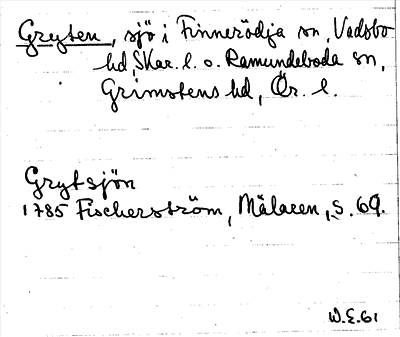 Gryten, sjö i Finnerödja sn, Vadsbo
hd, Skar. l. o. Ramundeboda sn,
Grimstens hd, Ör. l.
Grytsjön
1785 Fischerström, Mälaren, s. 69.
W.E.61